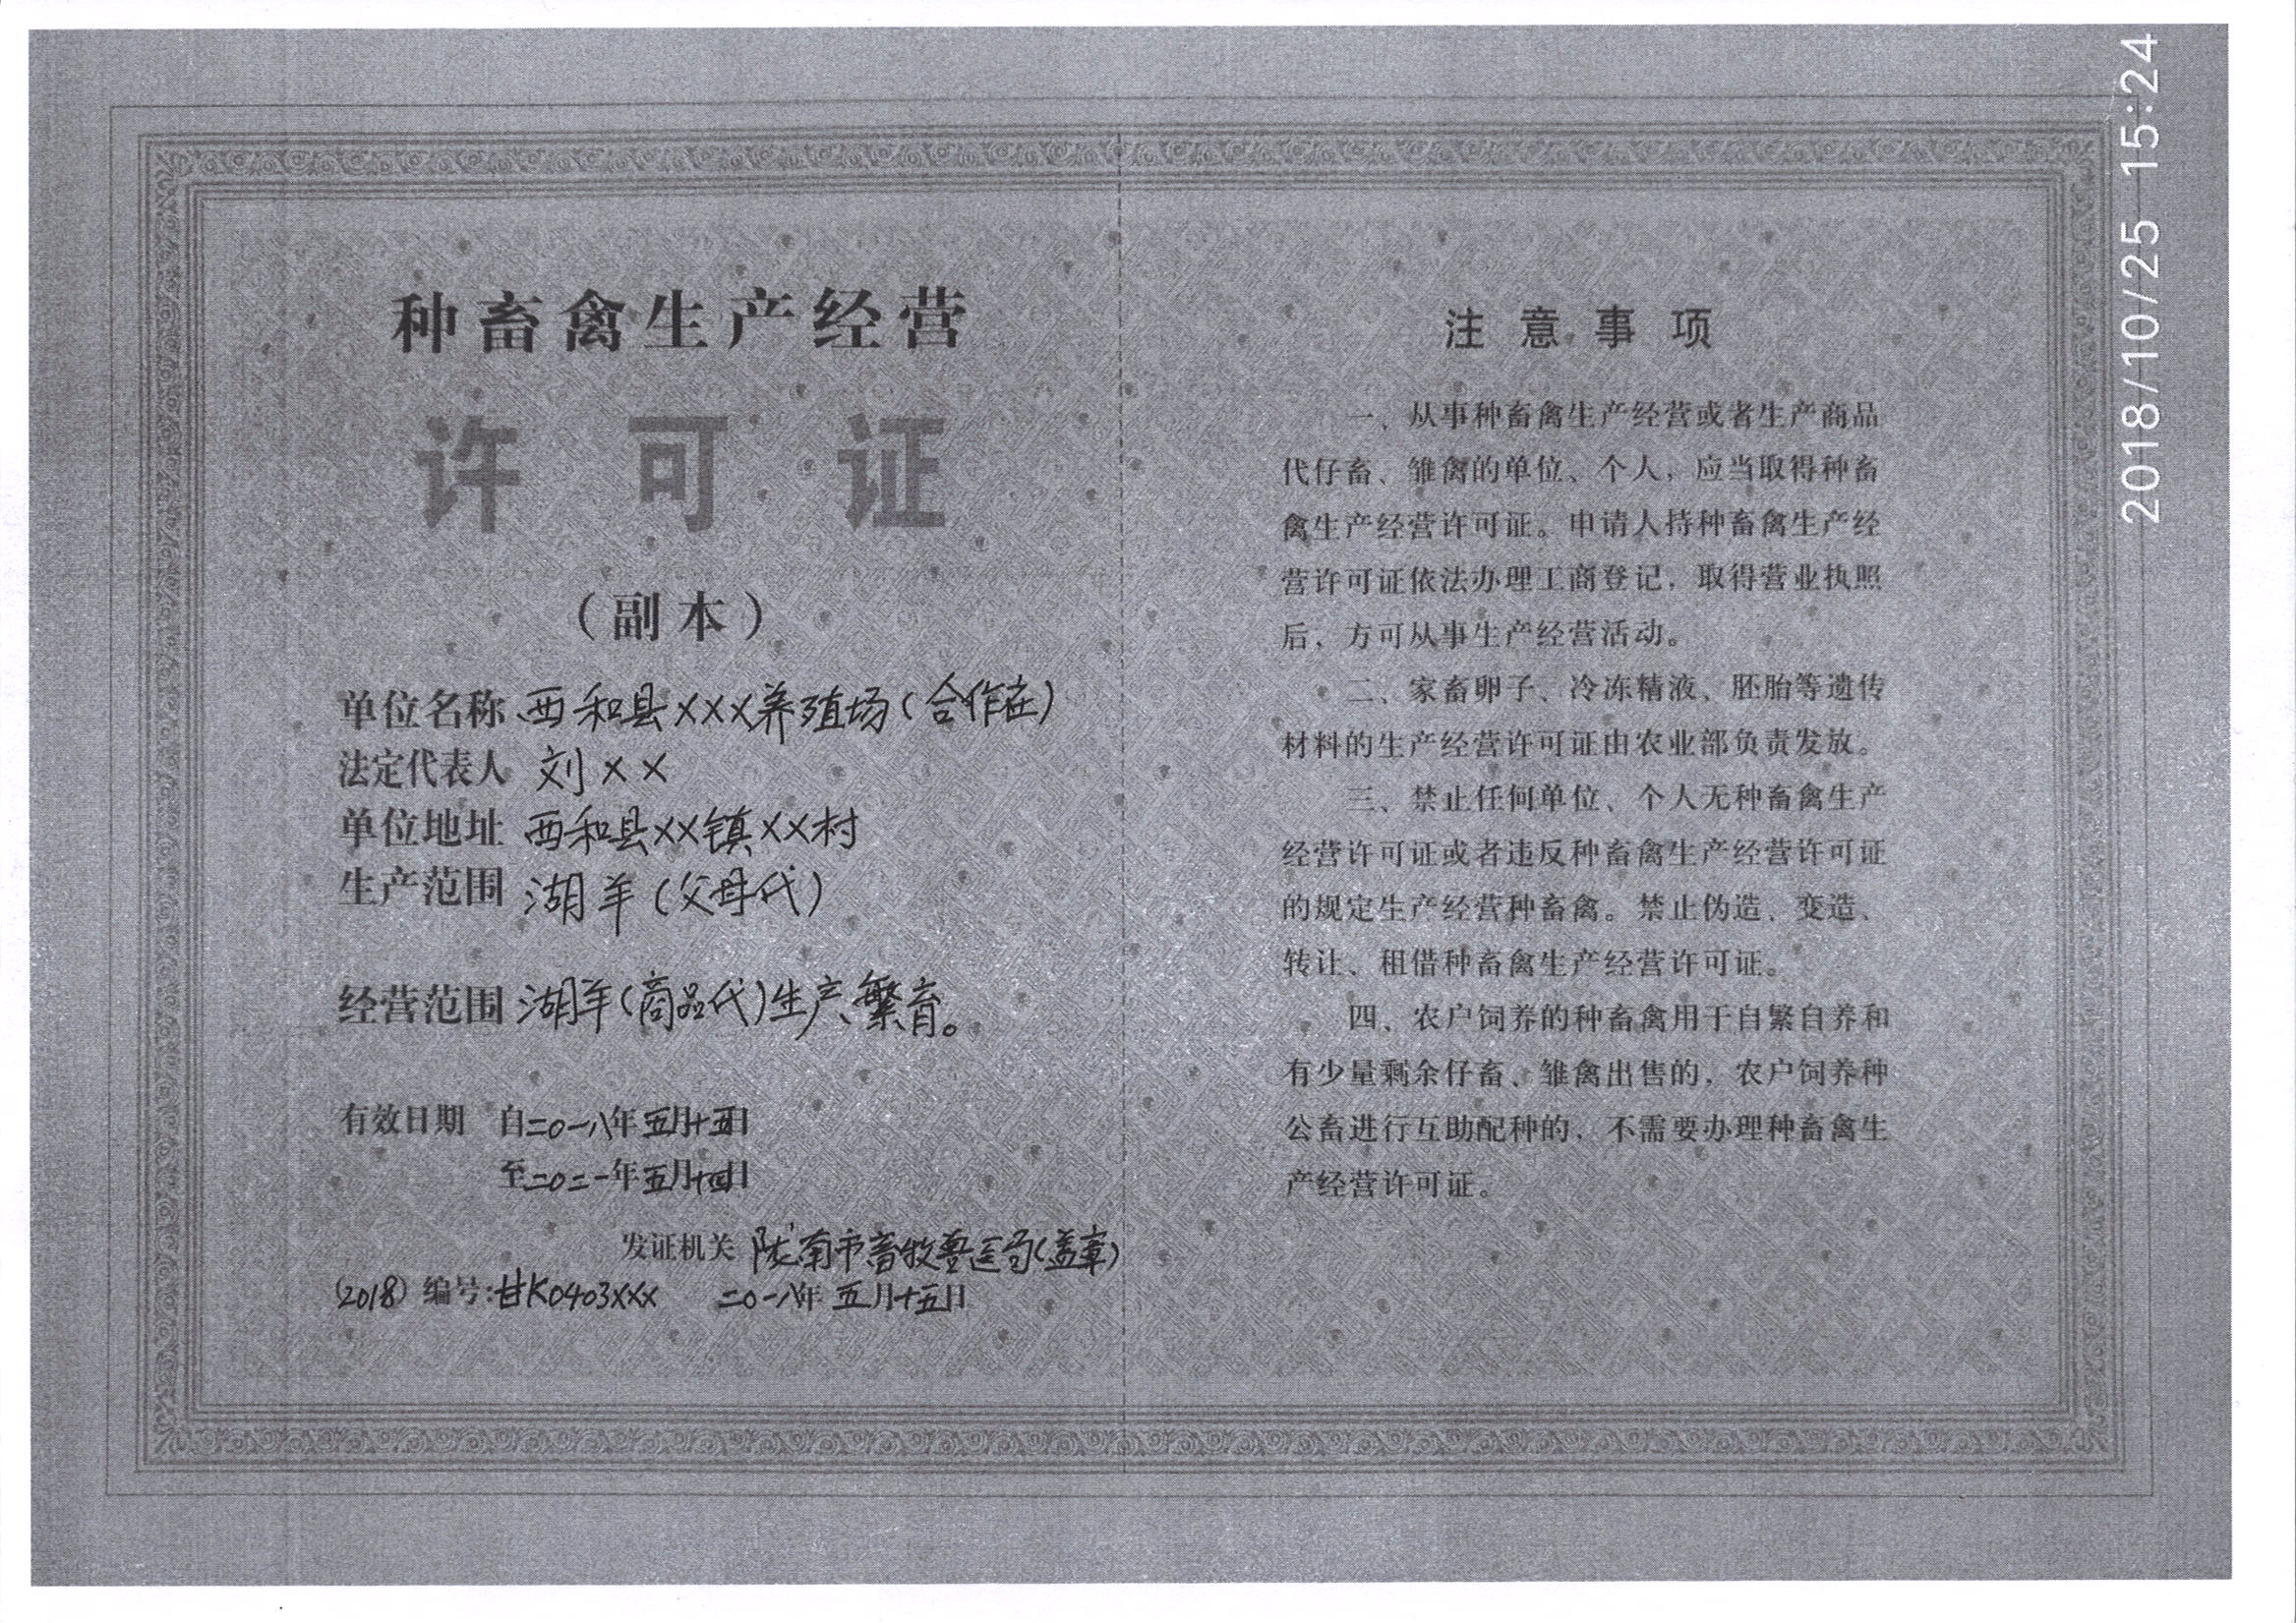 种畜禽生产经营
许可证
（副本）
单位名称 西和县XXX养殖场（合作社）
法定代表人 刘XX
单位地址 西和县XX镇XX村
生产范围 湖羊（父母代）
经营范围 湖羊（商品代）生产、繁育。
有效日期 自二〇一八年五月十五日
至二〇二一年五月十四日
发证机关 陇南市畜牧兽医局（盖章）
（2018）编号：甘K0403XXX 二〇一八年五月十五日
注意事项
一、从事种畜禽生产经营或者生产商品
代仔畜、雏禽的单位、个人，应当取得种畜
禽生产经营许可证。申请人持种畜禽生产经
营许可证依法办理工商登记，取得营业执照
后，方可从事生产经营活动。
二、家畜卵子、冷冻精液、胚胎等遗传
材料的生产经营许可证由农业部负责发放。
三、禁止任何单位、个人无种畜禽生产
经营许可证或者违反种畜禽生产经营许可证
的规定生产经营种畜禽。禁止伪造、变造、
转让、租借种畜禽生产经营许可证。
四、农户饲养的种畜禽用于自繁自养和
有少量剩余仔畜、雏禽出售的，农户饲养种
公畜进行互助配种的，不需要办理种畜禽生
产经营许可证。
2018/10/25 15:24